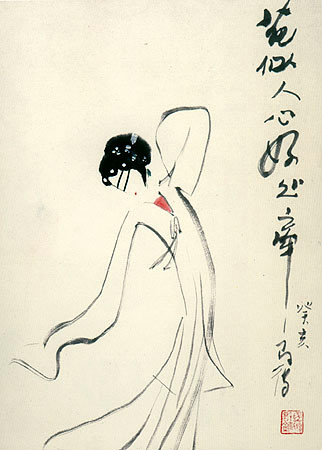 花似人心好处牵
癸亥
马得